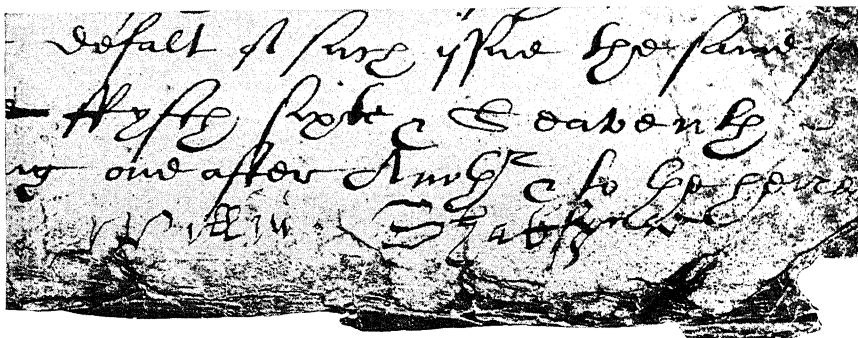 defalt of such yssue the same
ffyfth sixte & Seaventh
ng one after Anothr & to the heire
Willm Shakspere